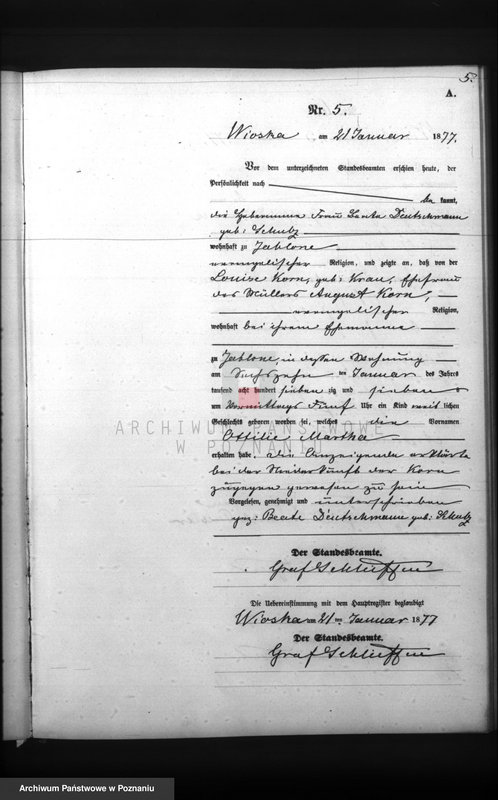 5.
A.
Nr. 5.
Wioska am 21 Januar 1877.
Vor dem unterzeichneten Standesbeamten erschien heute, der
Persönlichkeit nach be kannt,
die Hebamme Frau Beate Deutschmann
geb: Schulz
wohnhaft zu Jablone
evangelischer Religion, und zeigte an, daß von der
Louise Korn, geb: Krau, Ehefrau
des Müllers August Korn,
evangelischer Religion,
wohnhaft bei ihrem Ehemanne
zu Jablone, in dessen Wohnung
am Sechszehn ten Januar des Jahres
tausend acht hundert sieben zig und sieben
um Vormittags Fünf Uhr ein Kind weib lichen
Geschlechts geboren worden sei, welches die Vornamen
Ottilie Martha
erhalten habe. Die Anzeigende erklärte
bei der Niederkunft der Korn
zugegen gewesen zu sein
Vorgelesen, genehmigt und unterschrieben
gez: Beate Deutschmann geb: Schulz
Der Standesbeamte.
Graf Schlieffen
Die Uebereinstimmung mit dem Hauptregister beglaubigt
Wioska am 21 ten Januar 1877
Der Standesbeamte.
Graf Schlieffen
ARCHIWUM PAŃSTWOWE
W POZNANIU
Archiwum Państwowe w Poznaniu